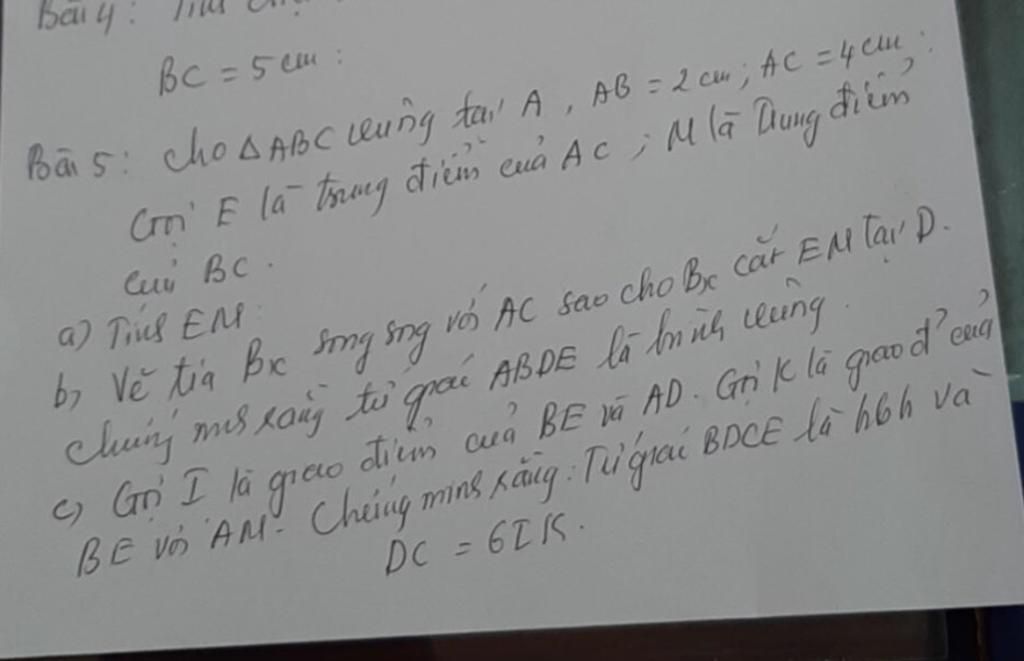 Bài 4: Tính
BC = 5 cm :
Bài 5: Cho △ABC vuông tại A, AB = 2 cm; AC = 4 cm.
Gọi E là trung điểm của AC; M là Trung điểm
của BC.
a) Tính EM.
b, Vẽ tia Bx song sng với AC sao cho Bx cắt EM tại D.
Chứng minh rằng tứ giác ABDE là hình vuông.
c) Gọi I là giao điểm của BE và AD. Gọi K là giao đ' của
BE với AM. Chứng minh rằng: Tứ giác BDCE là hbh và
DC = 6IK.